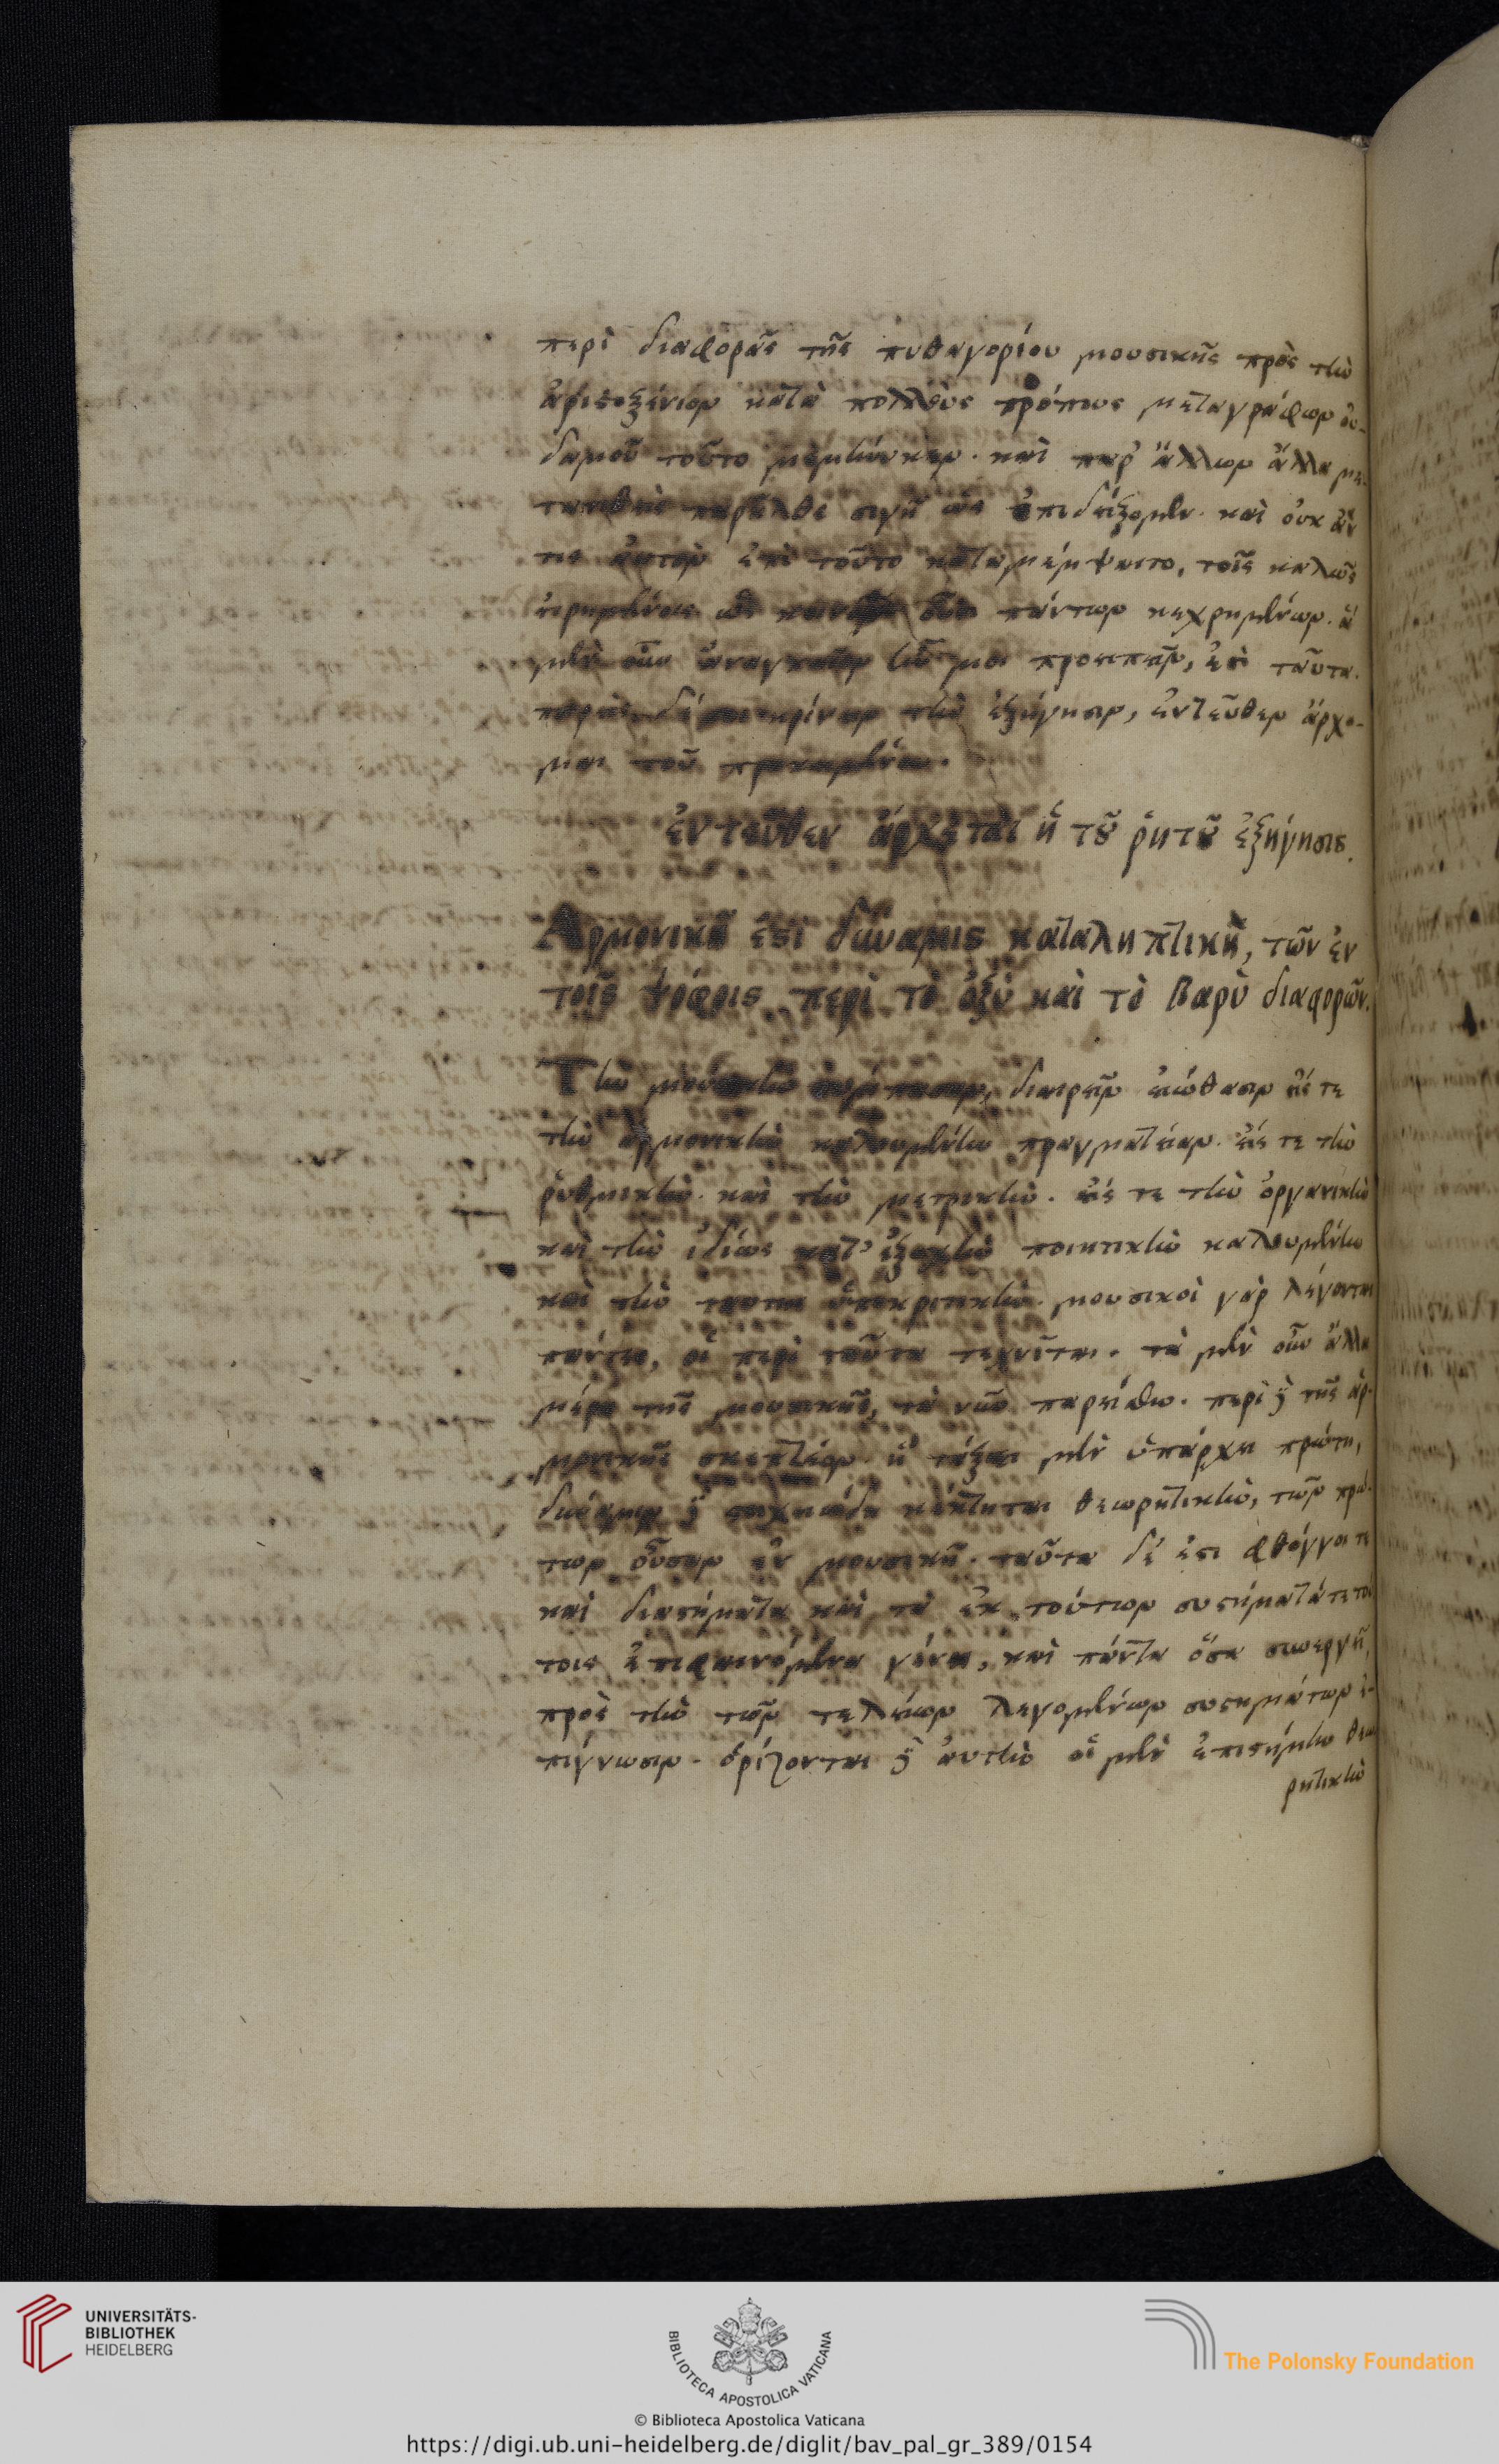 περὶ διαφορᾶς τῆς πυθαγορίου μουσικῆς πρὸς τὴν
ἀριστοξένιον κατὰ πολλοὺς τρόπους μεταγράφων ου-
δαμοῦ τοῦτο μεμήνυκεν. καὶ παρ' ἄλλων ἄλλα με-
ταθεὶς παρῆλθε σιγῇ ὡς ἐπιδείξομεν. καὶ οὐκ ἄν
τις αὐτὸν ἐπὶ τοῦτο καταμέμψαιτο, τοῖς καλῶς
εἰρημένοις ὡς πάντων κεχρημένων. ἃ
μὲν οὖν ἀναγκαῖον ἦν μοι προειπεῖν, ἐστὶ ταῦτα.
τὴν ἐξήγησιν, ἐντεῦθεν ἄρχο-
μαι τοῦ προκειμένου.
ἐντεῦθεν ἄρχεται ἡ τοῦ ῥητοῦ ἐξήγησις.
Ἁρμονικὴ ἐστὶ δύναμις καταληπτικὴ, τῶν ἐν
τοῖς ψόφοις περὶ τὸ ὀξὺ καὶ τὸ βαρὺ διαφορῶν.
Τὴν μουσικὴν σύμπασαν, διαιρεῖν εἰώθασιν εἴς τε
τὴν ἁρμονικὴν καλουμένην πραγματείαν. εἴς τε τὴν
ῥυθμικὴν. καὶ τὴν μετρικὴν. εἴς τε τὴν ὀργανικὴν
καὶ τὴν ἰδίως κατ' ἐξοχὴν ποιητικὴν καλουμένην
καὶ τὴν ταύτης ὑποκριτικὴν. μουσικοὶ γὰρ λέγονται
πάντες, οἱ περὶ ταῦτα τεχνῖται. τὰ μὲν οὖν ἄλλα
μέρη τῆς μουσικῆς, τὰ νῦν παρείσθω. περὶ δὲ τῆς ἁρ-
μονικῆς σκεπτέον. ἣ τάξει μὲν ὑπάρχει πρώτη,
δύναμιν δὲ στοιχειώδη κέκτηται θεωρητικὴν, τῶν πρώ-
των οὖσαν ἐν μουσικῇ. ταῦτα δέ ἐστι φθόγγοι τε
καὶ διαστήματα καὶ τὰ ἐκ τούτων συστήματά τε τού
τοις ἐπιφαινόμενα γένη, καὶ πάντα ὅσα συνεργῇ,
πρὸς τὴν τῶν τελείων λεγομένων συστημάτων ἐ-
πίγνωσιν. ὁρίζονται δὲ αὐτὴν οἱ μὲν ἐπιστήμην θεω
ρητικὴν
UNIVERSITÄTS-
BIBLIOTHEK
HEIDELBERG
BIBLIOTECA APOSTOLICA VATICANA
The Polonsky Foundation
© Biblioteca Apostolica Vaticana
https://digi.ub.uni-heidelberg.de/diglit/bav_pal_gr_389/0154